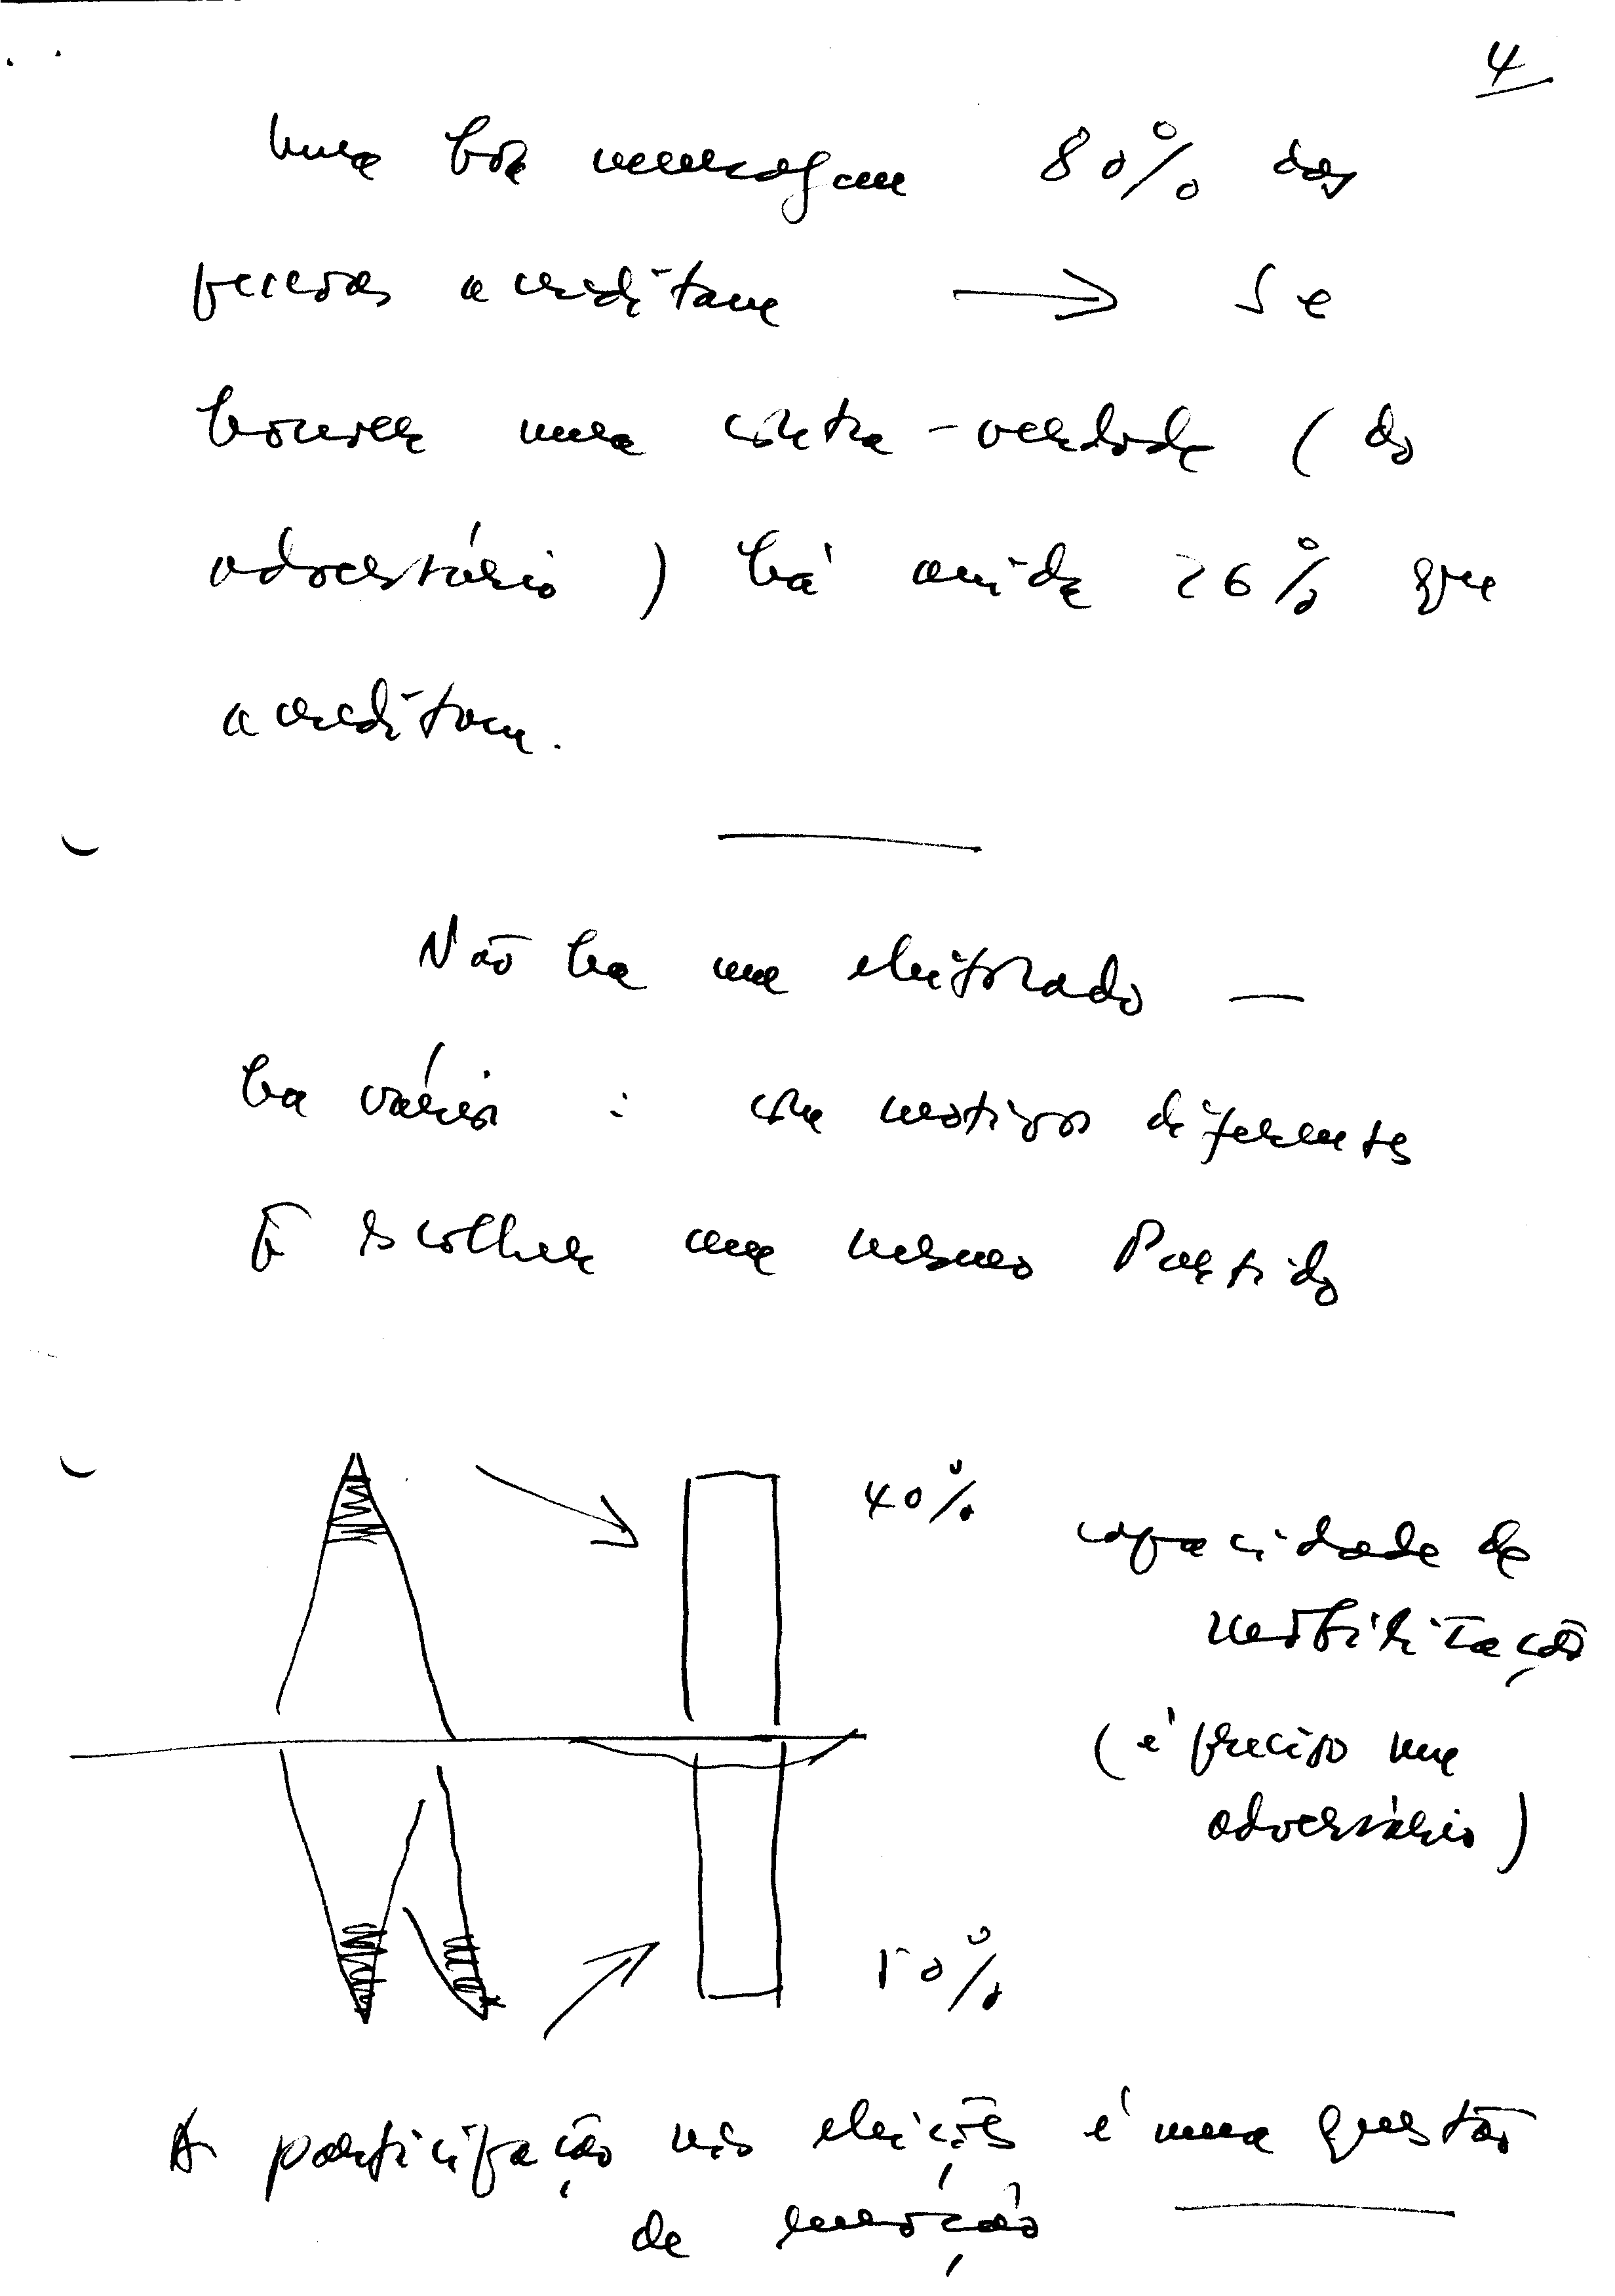 4
Numa boa mensagem 80% das
pessoas acreditam → Se
houver uma contra-verdade (do
adversário) há ainda 26% que
acreditam.
Não ha um eleitorado —
ha vários : com motivos diferentes
E escolher um mesmo Partido
40%
capacidade de
mobilização
(é preciso um
adversário)
50%
A participação nas eleições é uma questão
de emoção